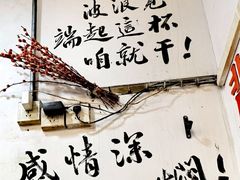 波浪
端起這杯
咱就干!
感情深
悶!